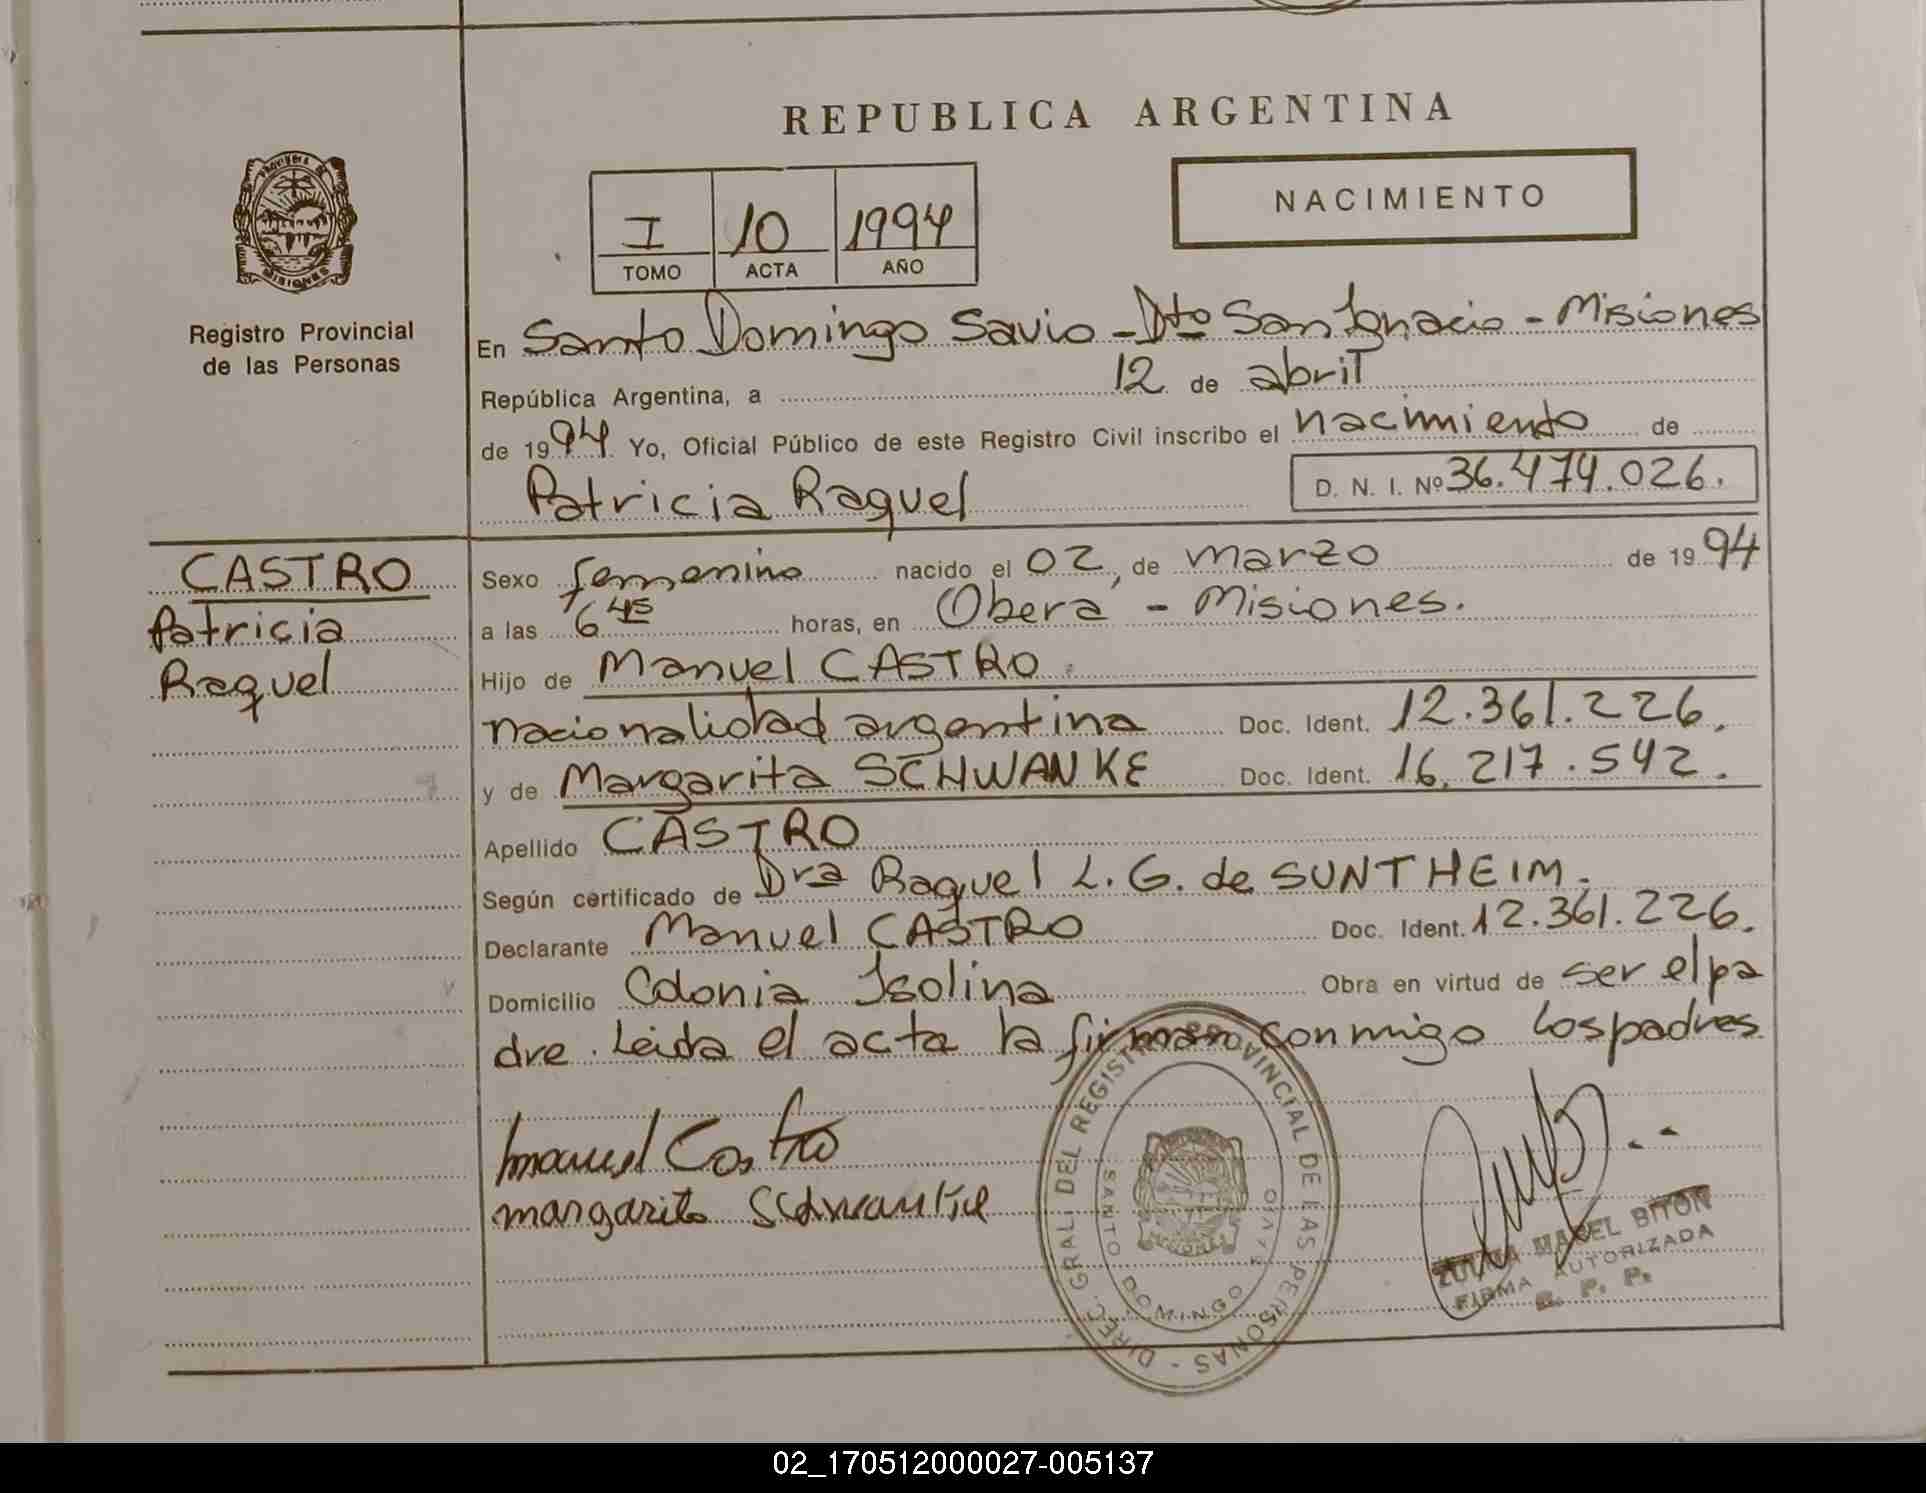 REPUBLICA ARGENTINA
PROVINCIA DE
MISIONES
Registro Provincial
de las Personas
I 10 1994
TOMO ACTA AÑO
NACIMIENTO
En Santo Domingo Savio - Dto San Ignacio - Misiones
República Argentina, a 12 de abril
de 1994 Yo, Oficial Público de este Registro Civil inscribo el nacimiento de
Patricia Raquel D. N. I. Nº 36.474.026.
CASTRO
Patricia
Raquel
Sexo femenino nacido el 02, de marzo de 1994
a las 6 45 horas, en Oberá - Misiones.
Hijo de Manuel CASTRO
nacionalidad argentina Doc. Ident. 12.361.226.
y de Margarita SCHWANKE Doc. Ident. 16.217.542.
Apellido CASTRO
Según certificado de Dra Raquel L. G. de SUNTHEIM.
Declarante Manuel CASTRO Doc. Ident. 12.361.226.
Domicilio Colonia Isolina Obra en virtud de ser el pa
dre. Leida el acta la firman conmigo los padres.
Manuel Castro
margarita Schwantke
DIREC. GRAL. DEL REGISTRO PROVINCIAL DE LAS PERSONAS -
SANTO DOMINGO SAVIO
ZULMA MABEL BITON
FIRMA AUTORIZADA
R. P. P.
02_170512000027-005137